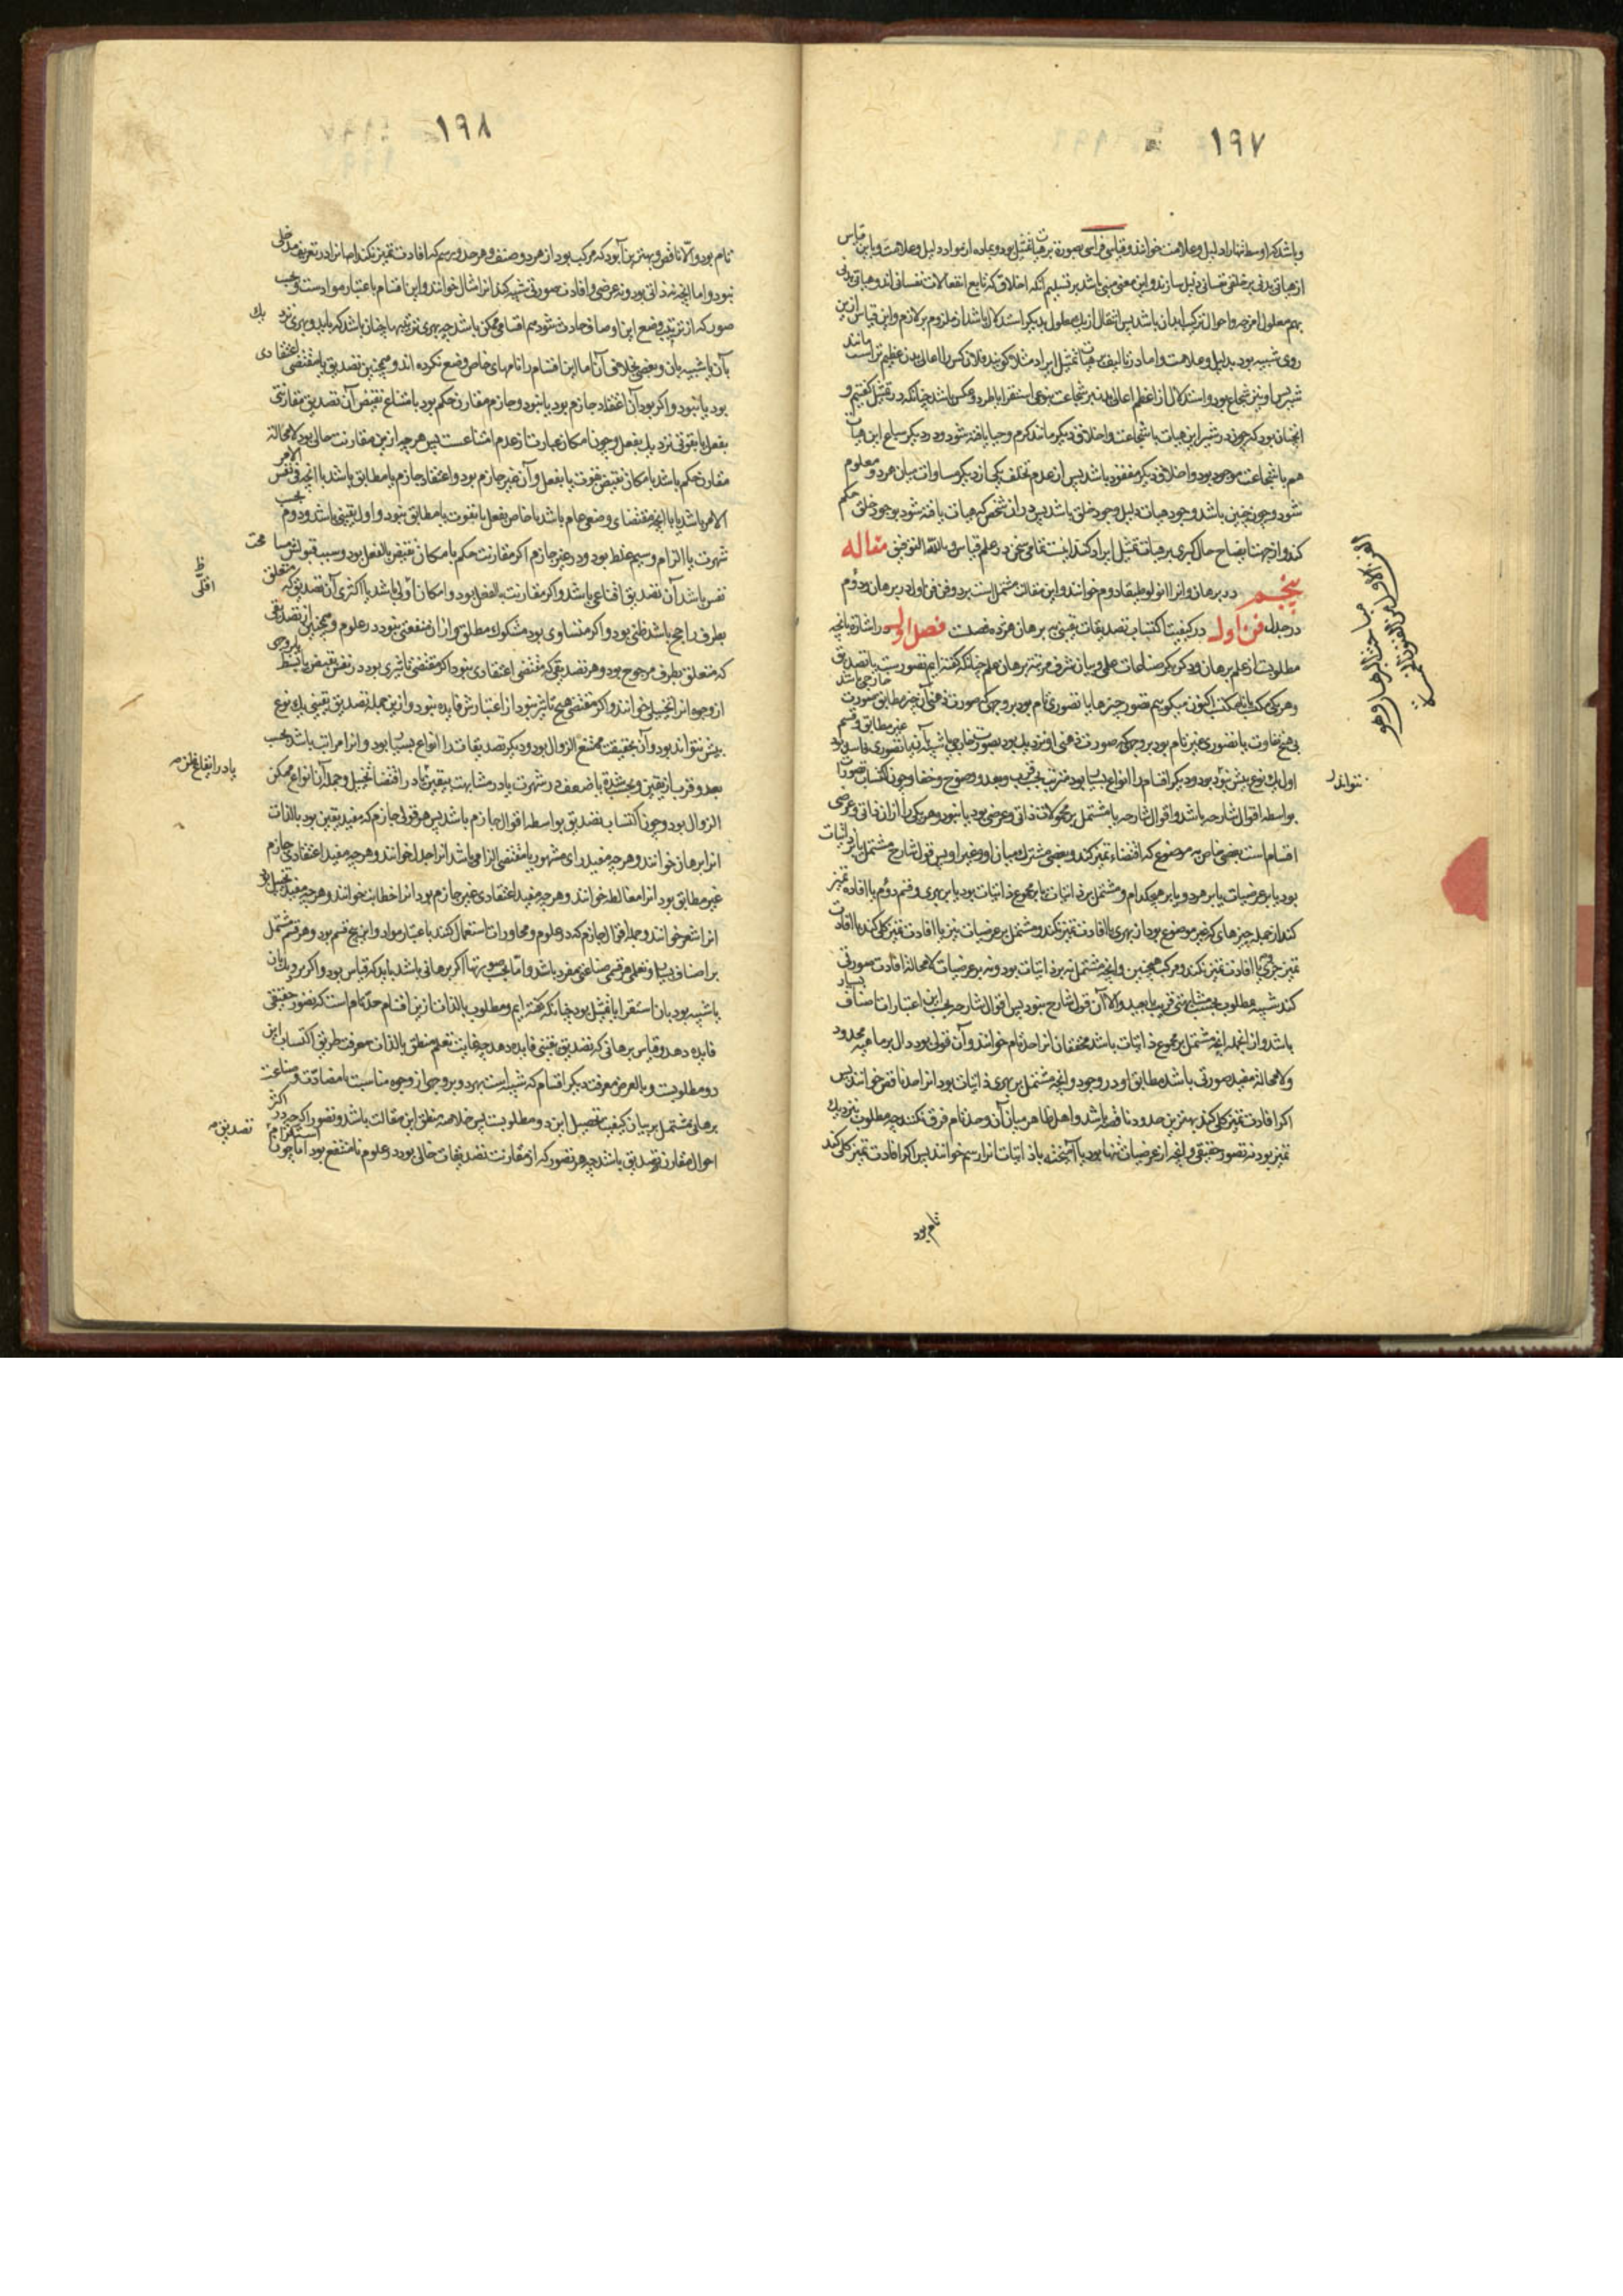 ۱۹۷
و باشد که اوسط تنها را دلیل و علامت خوانند و قیاس فراسی بصورت تمثیل بود و بماده از مواد دلیل و علامت و باین قیاس
از هیاتی بدنی بر خلقی نفسانی دلیل سازند و این معنی مبنی باشد بر تسلیم آنکه اخلاق که تابع انفعالات نفسانی اند و هیاتی بدنی
بهم معلول امزجه و احوال ترکیب ابدان باشد پس انتقال از یک معلول بدیگر استدلال باشد از ملزوم بر لازم و این قیاس ازین
روی شبیه بود بدلیل و علامت و اما در تالیف بر هیات تمثیل ایراد مثلا گویند فلان کس را اعالی بدن عظیم تر است مانند
شیر پس او نیز شجاع بود و استدلال از عظم اعالی بدن بر شجاعت بنوعی استقرا یا طرد و عکس باشد چنانکه در تمثیل گفتیم و
آنچنان بود که چون در شیر این هیات با شجاعت و اخلاقی دیگر مانند کرم و حیا یافته شود و در دیگر سباع این هیات
هم با شجاعت موجود بود و اخلاقی دیگر مفقود باشد پس از عدم تخلف یکی از دیگر مساوات میان هر دو معلوم
شود و چون چنین باشد وجود هیات دلیل وجود خلق باشد پس در ان شخص که هیات یافته شود بوجود خلق حکم
کنند و از جهت ایضاح حال کبری بر هیات تمثیل ایراد کنند اینست تمامی سخن در علم قیاس و بالله التوفیق مقاله
پنجم در برهان و انرا انولوطیقا دوم خوانند و این مقالت مشتمل است بر دو فن فن اول در برهان و دوم
در جدل فن اول در کیفیت اکتساب تصدیقات یقینی ببرهان هژده فصلست فصل اول در اشاره بانچه
مطلوبست از علم برهان و ذکر دیگر صناعات علمی و بیان شرف مرتبه برهان علم چنانکه گفته ایم تصورست یا تصدیق
و هر یکی مکتسب یا نامکتسب اکنون میگوییم تصور چیزها یا تصوری تام بود بر وجهی که صورت ذهنی آن چیز مطابق صورت خارجی باشد
بی هیچ تفاوت یا تصوری غیر تام بود بر وجهی که صورت ذهنی او نزدیک بود بصورت خارجی یا شبیه بآن یا تصوری فاسد بود غیر مطابق و قسم
اول یک نوع بیش نبود و دیگر اقسام را انواع بسیار بود مترتب بحسب قرب و بعد و وضوح و خفا و چون اکتساب تصورات
بواسطه اقوال شارحه باشد و اقوال شارحه یا مشتمل بر محمولات ذاتی و عرضی بود یا نبود و هر یکی را از ذاتی و عرضی
اقسام است بعضی خاص به موضوع که اقتضاء تمیز کند و بعضی مشترک میان او و غیر او پس قول شارح مشتمل یا بر ذاتیات
بود یا بر عرضیات یا بر هر دو یا بر هیچکدام و مشتمل بر ذاتیات یا بر مجموع ذاتیات بود یا بر بهری و قسم دوم یا افاده تمیز
کند از جمله چیزهای که غیر موضوع بود از بهری یا افادت تمیز نکند و مشتمل بر عرضیات نیز یا افادت تمیز کلی کند یا افادت
تمیز جزوی یا افادت تمیز نکند و مرکب همچنین و آنچه مشتمل نه بر ذاتیات بود و نه بر عرضیات لامحاله افادت صورتی
کند شبیه مطلوب بحسب مشابهتی قریب یا بعید والا آن قول شارح نبود پس اقوال شارحه بحسب این اعتبارات اصناف بسیار
باشد و از انجمله آنچه مشتمل بر مجموع ذاتیات باشد محققان انرا حد تام خوانند و آن قولی بود دال بر ماهیت محدود
ولامحاله مفید صورتی باشد مطابق او در وجود و آنچه مشتمل بر بهری ذاتیات بود انرا حد ناقص خوانند پس
اگر افادت تمیز کلی کند بهترین حدود ناقصه باشد و اهل ظاهر میان آن و حد تام فرق نکنند و چه مطلوب بنزدیک
تمیز بود نه تصور حقیقی و آنچه از عرضیات تنها بود یا آمیخته با ذاتیات انرا رسم خوانند پس اگر افادت تمیز کلی کند
تام بود
الفن الاول من الفنون الخمسة
مباحث البرهان وهو
نتواند
۱۹۸
تام بود والا ناقص و بهترین آن بود که مرکب بود از هر دو صنف و هر حد و رسم که افادت تمیز نکند اصلا انرا در تعریف مدخلی
نبود و اما آنچه نه ذاتی بود و نه عرضی و افادت صورتی شبیه کند انرا مثال خوانند و این اقسام باعتبار موادست و بحسب
صور که از ترتیب و وضع این اوصاف حادث شود هم اقسامی ممکن باشد چه بهری ترتیبها چنان باشد که باید و بهری نزدیک
بآن یا شبیه بان و بعضی بخلاف آن اما این اقسام را نامهای خاص وضع نکرده اند و همچنین تصدیق یا مقتضی اعتقادی
بود یا نبود و اگر بود آن اعتقاد جازم بود یا نبود و جازم مقارن حکم بود بامتناع نقیض آن تصدیق مقارنتی
بفعل یا بقوتی نزدیک بفعل و چون امکان عبارت از عدم امتناعست پس هرچه ازین مقارنت خالی بود لامحاله
مقارن حکم باشد بامکان نقیض بقوت یا بفعل و آن غیر جازم بود و اعتقاد جازم یا مطابق باشد با آنچه فی نفس الامر
الامر باشد یا با آنچه مقتضای وضعی عام باشد یا خاص بفعل یا بقوت یا مطابق نبود و اول یقینی باشد و دوم بحسب
شهرت یا الزام و سیم غلط بود و در غیر جازم اگر مقارنت حکم بامکان نقیض بالفعل بود و سبب قبولش مسامحت
نفس باشد آن تصدیق اقناعی باشد و اگر مقارنت بالفعل بود و امکان اولی باشد یا اکثری آن تصدیق که متعلق
بطرف راجح باشد ظنی بود و اگر متساوی بود مشکوک مطلق و از ان منفعتی نبود در علوم و همچنین از تصدیقی
که متعلق بطرف مرجوح بود و هر تصدیقی که مقتضی اعتقادی نبود اگر مقتضی تاثیری بود در نفس بقبض یا بسط بر وجهی
از وجوه انرا تخییل خوانند و اگر مقتضی هیچ تاثیر نبود از اعتبارش فایده نبود و ازین جمله تصدیق یقینی یک نوع
بیش نتواند بود و آن بحقیقت ممتنع الزوال بود و دیگر تصدیقات را انواع بسیار بود و انرا مراتب باشد بحسب
بعد و قرب از یقین و بحسب شدت یا ضعف در شهرت یا در مشابهت بیقین یا در اقتضا تخییل و جمله آن انواع ممکن
الزوال بود و چون اکتساب تصدیق بواسطه اقوال جازم باشد پس هر قولی جازم که مفید یقین بود بالذات
انرا برهان خوانند و هرچه مفید رای مشهور یا مقتضی الزامی باشد انرا جدل خوانند و هرچه مفید اعتقادی جازم
غیر مطابق بود انرا مغالطه خوانند و هرچه مفید اعتقادی غیر جازم بود انرا خطابت خوانند و هرچه مفید تخییل بود
انرا شعر خوانند و جمله اقوال جازم که در علوم و محاورات استعمال کنند باعتبار مواد و این پنج قسم بود و هر قسم مشتمل
بر اصناف بسیار و تعلم هر قسمی صناعتی مفرد باشد و اما بحسب صورتها اگر برهانی باشد باید که قیاس بود و اگر نزدیک بان
یا شبیه بود بان استقرا یا تمثیل بود چنانکه گفته ایم و مطلوب بالذات ازین اقسام حد تام است که تصور حقیقی
فایده دهد و قیاس برهانی که تصدیق یقینی فایده دهد چه غایت تعلم منطق بالذات معرفت طریق اکتساب این
دو مطلوبست و بالعرض معرفت دیگر اقسام که شبیه است بهر دو بر وجهی از وجوه مناسبت یا مضادت و صناعت
برهانی مشتمل بر بیان کیفیت تحصیل این دو مطلوبست پس خلاصه منطق این مقالت باشد و تصور اگرچه در اکثر
احوال مقارن تصدیق باشد چه هر تصور که از مقارنت تصدیقات خالی بود در علوم نامنتفع بود اما چون استلزام
ظ
اقلی
یا در ایقاع ظن
تصدیق